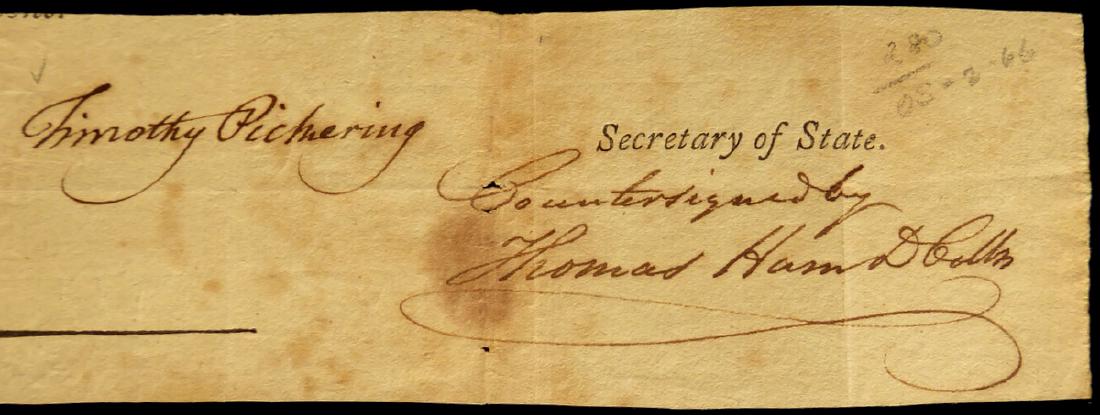 Timothy Pickering
Secretary of State.
Countersigned by
Thomas Ham D Collr
280